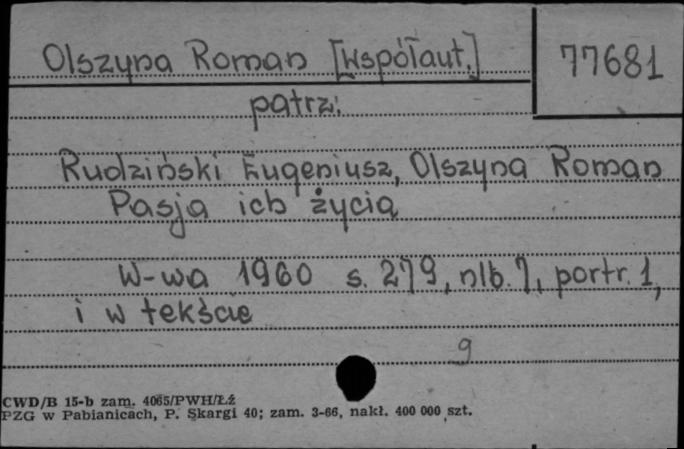 Olszyna Roman [współaut.] 77681
patrz:
Rudziński Eugeniusz, Olszyna Roman
Pasja ich życia
W-wa 1960 s. 279, nlb. 7, portr. 1,
i w tekście
g
CWD/B 15-b zam. 4065/PWH/Łź
PZG w Pabianicach, P. Skargi 40; zam. 3-66, nakł. 400 000 szt.